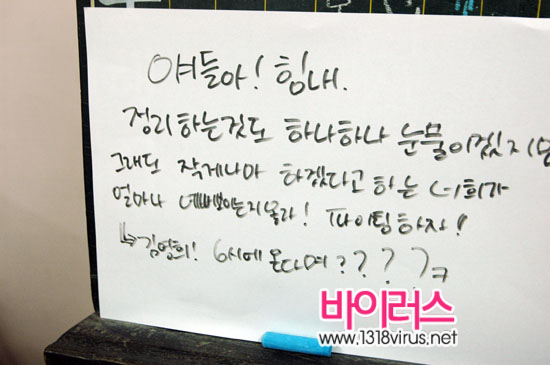 야들아! 힘내.
정리하는것도 하나하나 눈물이겠지만
그래도 작게나마 하겠다고 하는 너희가
얼마나 예뻐보이는지몰라! 파이팅하자!
↳김영희! 6시에 온다며????ㅋ
바이러스
www.1318virus.net